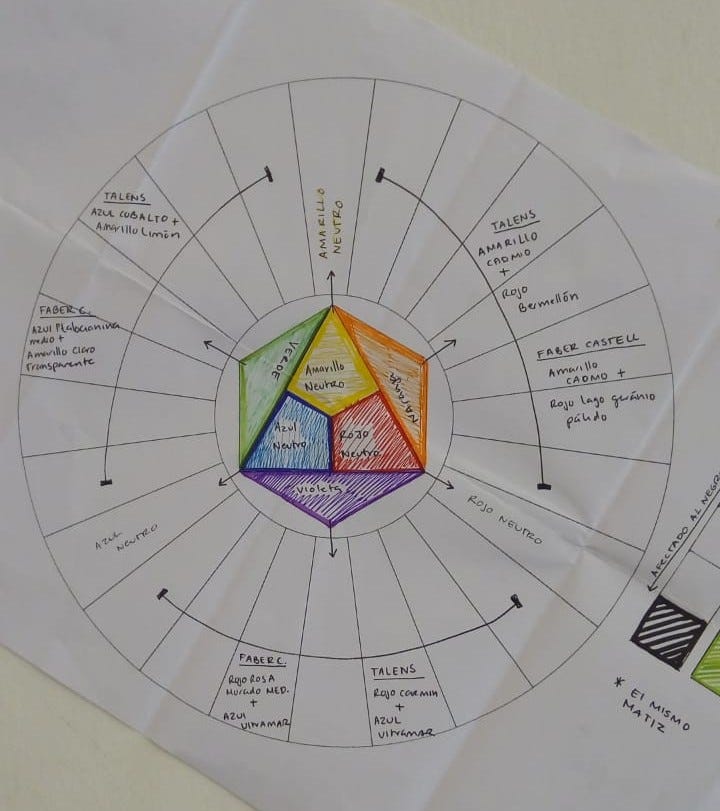 TALENS
AZUL COBALTO +
Amarillo Limón
FABER C.
AZUL Ftalocianina
medio +
Amarillo Claro
Transparente
AMARILLO
NEUTRO
TALENS
AMARILLO
CADMIO
+
ROJO
Bermellón
FABER CASTELL
Amarillo
CADMO +
ROJO Lago geránio
pálido
VERDE
Amarillo
Neutro
NARANJA
Azul
Neutro
ROJO
Neutro
Violeta
AZUL
NEUTRO
ROJO NEUTRO
FABER C.
ROJO ROSA
MED.
+
AZUL
UltraMAR
TALENS
ROJO CARMIN
+
AZUL
UltraMAR
AFECTADO AL NEGRO
* El MISMO
MATIZ